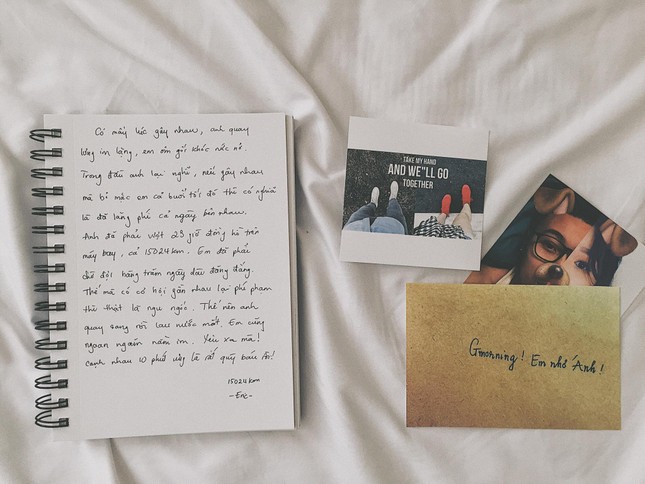 Có mấy lúc gây nhau, anh quay
lưng im lặng, em ôm gối khóc nức nở.
Trong đầu anh lại nghĩ, nếu gây nhau
mà bỏ mặc em cả buổi tối đó thì có nghĩa
là đã lãng phí cả ngày bên nhau.
Anh đã phải vượt 23 giờ đồng hồ trên
máy bay, cả 15024 km. Em đã phải
chờ đợi hàng trăm ngày dài đằng đẵng.
Thế mà có cơ hội gần nhau lại phí phạm
thì thật là ngu ngốc. Thế nên anh
quay sang rồi lau nước mắt. Em cũng
ngoan ngoãn nằm im. Yêu xa mà!
cạnh nhau 10 phút cũng là rất quý báu rồi!
15024 km
-Eric-
TAKE MY HAND
AND WE"LL GO
TOGETHER
Gmorning! Em nhớ Anh!